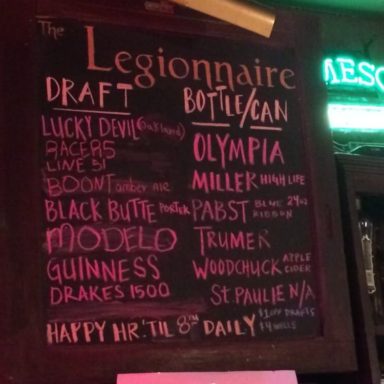 The
Legionnaire
DRAFT
LUCKY DEVIL (Oakland)
RACER 5
LINE 51
BOONT amber ale
BLACK BUTTE PORTER
MODELO
GUINNESS
DRAKES 1500
BOTTLE/CAN
OLYMPIA
MILLER HIGH LIFE
PABST BLUE RIBBON 24oz
TRUMER
WOODCHUCK APPLE CIDER
ST. PAULIE N/A
HAPPY HR. 'TIL 8PM DAILY
$1 OFF DRAFTS
$4 WELLS
MESC